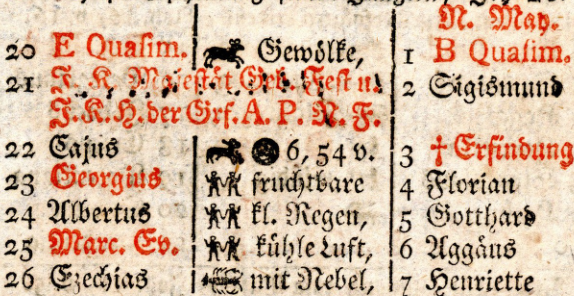 N. May.
20 E Quasim. Gewölke, 1 B Quasim.
21 J. K. Majestät Geb. Fest u. 2 Sigismund
J. K. H. der Grf. A. P. N. F.
22 Cajus 6, 54 v. 3 † Erfindung
23 Georgius fruchtbare 4 Florian
24 Albertus kl. Regen, 5 Gotthard
25 Marc. Ev. kühle Luft, 6 Aggäus
26 Ezechias mit Nebel, 7 Henriette